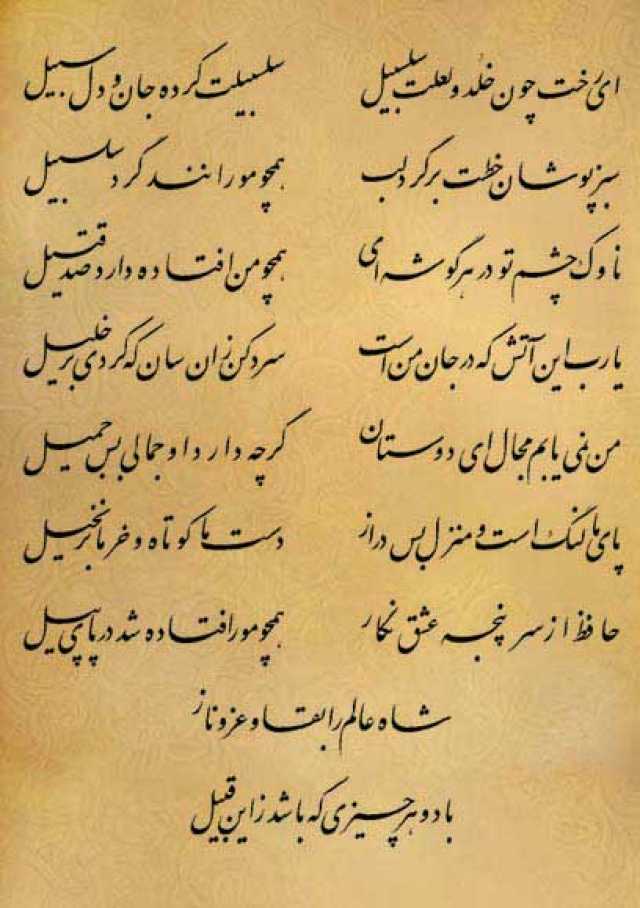 ای رخت چون خلد و لعلت سلسبیل سلسبیلت کرده جان و دل سبیل
سبزپوشان خطت بر گرد لب همچو مورانند گرد سلسبیل
ناوک چشم تو در هر گوشه‌ای همچو من افتاده دارد صد قتیل
یا رب این آتش که در جان من است سرد کن زان سان که کردی بر خلیل
من نمی‌یابم مجال ای دوستان گرچه دارد او جمالی بس جمیل
پای ما لنگ است و منزل بس دراز دست ما کوتاه و خرما بر نخیل
حافظ از سرپنجه عشق نگار همچو مور افتاده شد در پای پیل
شاه عالم را بقا و عز و ناز
باد و هر چیزی که باشد زاین قبیل